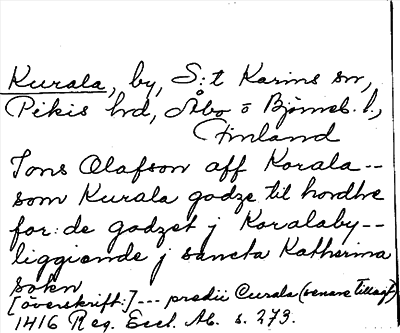 Kurala, by, S:t Karins sn,
Pikis hd, Åbo o Björneb. l.,
Finland
Jons Olafson aff Korala--
som Kurala godze til hordhe
for: de godzet j Koralaby--
liggiande j sancta Katherina
sokn
[överskrift:]--- predii Curala (senare tillagt)
1416 Reg. Eccl. Ab. s. 273.